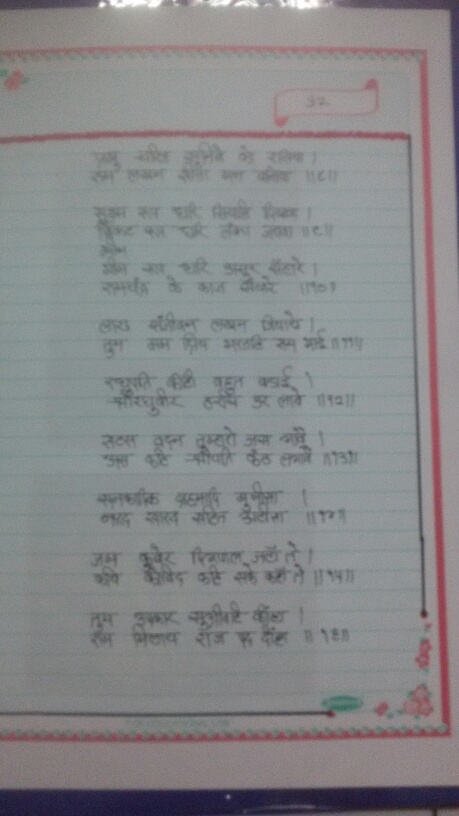 32
प्रभु चरित्र सुनिवे को रसिया ।
राम लखन सीता मन बसिया ॥८॥
सूक्ष्म रूप धरि सियहि दिखावा ।
बिकट रूप धरि लंका जरावा ॥९॥
भीम
भीम रूप धरि असुर सँहारे ।
रामचंद्र के काज सँवारे ॥१०॥
लाय संजीवन लखन जियाये ।
तुम मम प्रिय भरतहि सम भाई ॥११॥
रघुपति कीन्ही बहुत बडाई ।
श्रीरघुवीर हरषि उर लाये ॥१२॥
सहस बदन तुम्हरो जस गावै ।
अस कहि श्रीपति कंठ लगावै ॥१३॥
सनकादिक ब्रह्मादि मुनीसा ।
नारद सारद सहित अहीसा
जम कुबेर दिगपाल जहाँ ते ।
कवि कोविद कहि सके कहाँ ते ॥१५॥
तुम उपकार सुग्रीवहि कीन्हा ।
राम मिलाय राज पद दीन्हा ॥१६॥